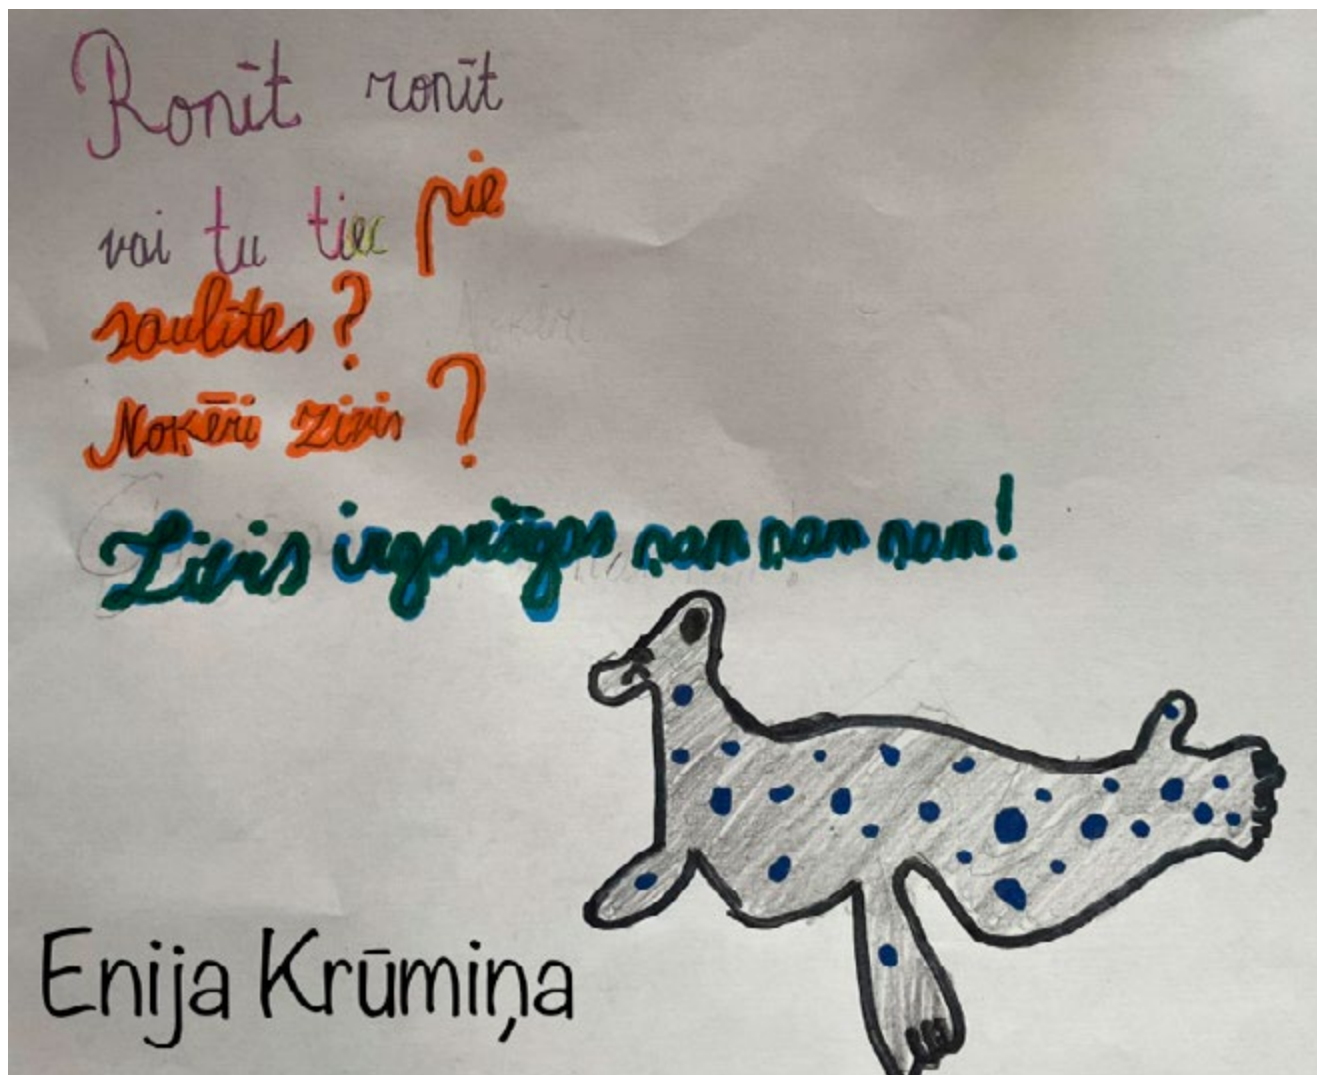 Ronīt ronīt
vai tu tiec pie
saulītes?
Noķēri zivis?
Zivis irgaršīgas ņam ņam ņam!
Enija Krūmiņa